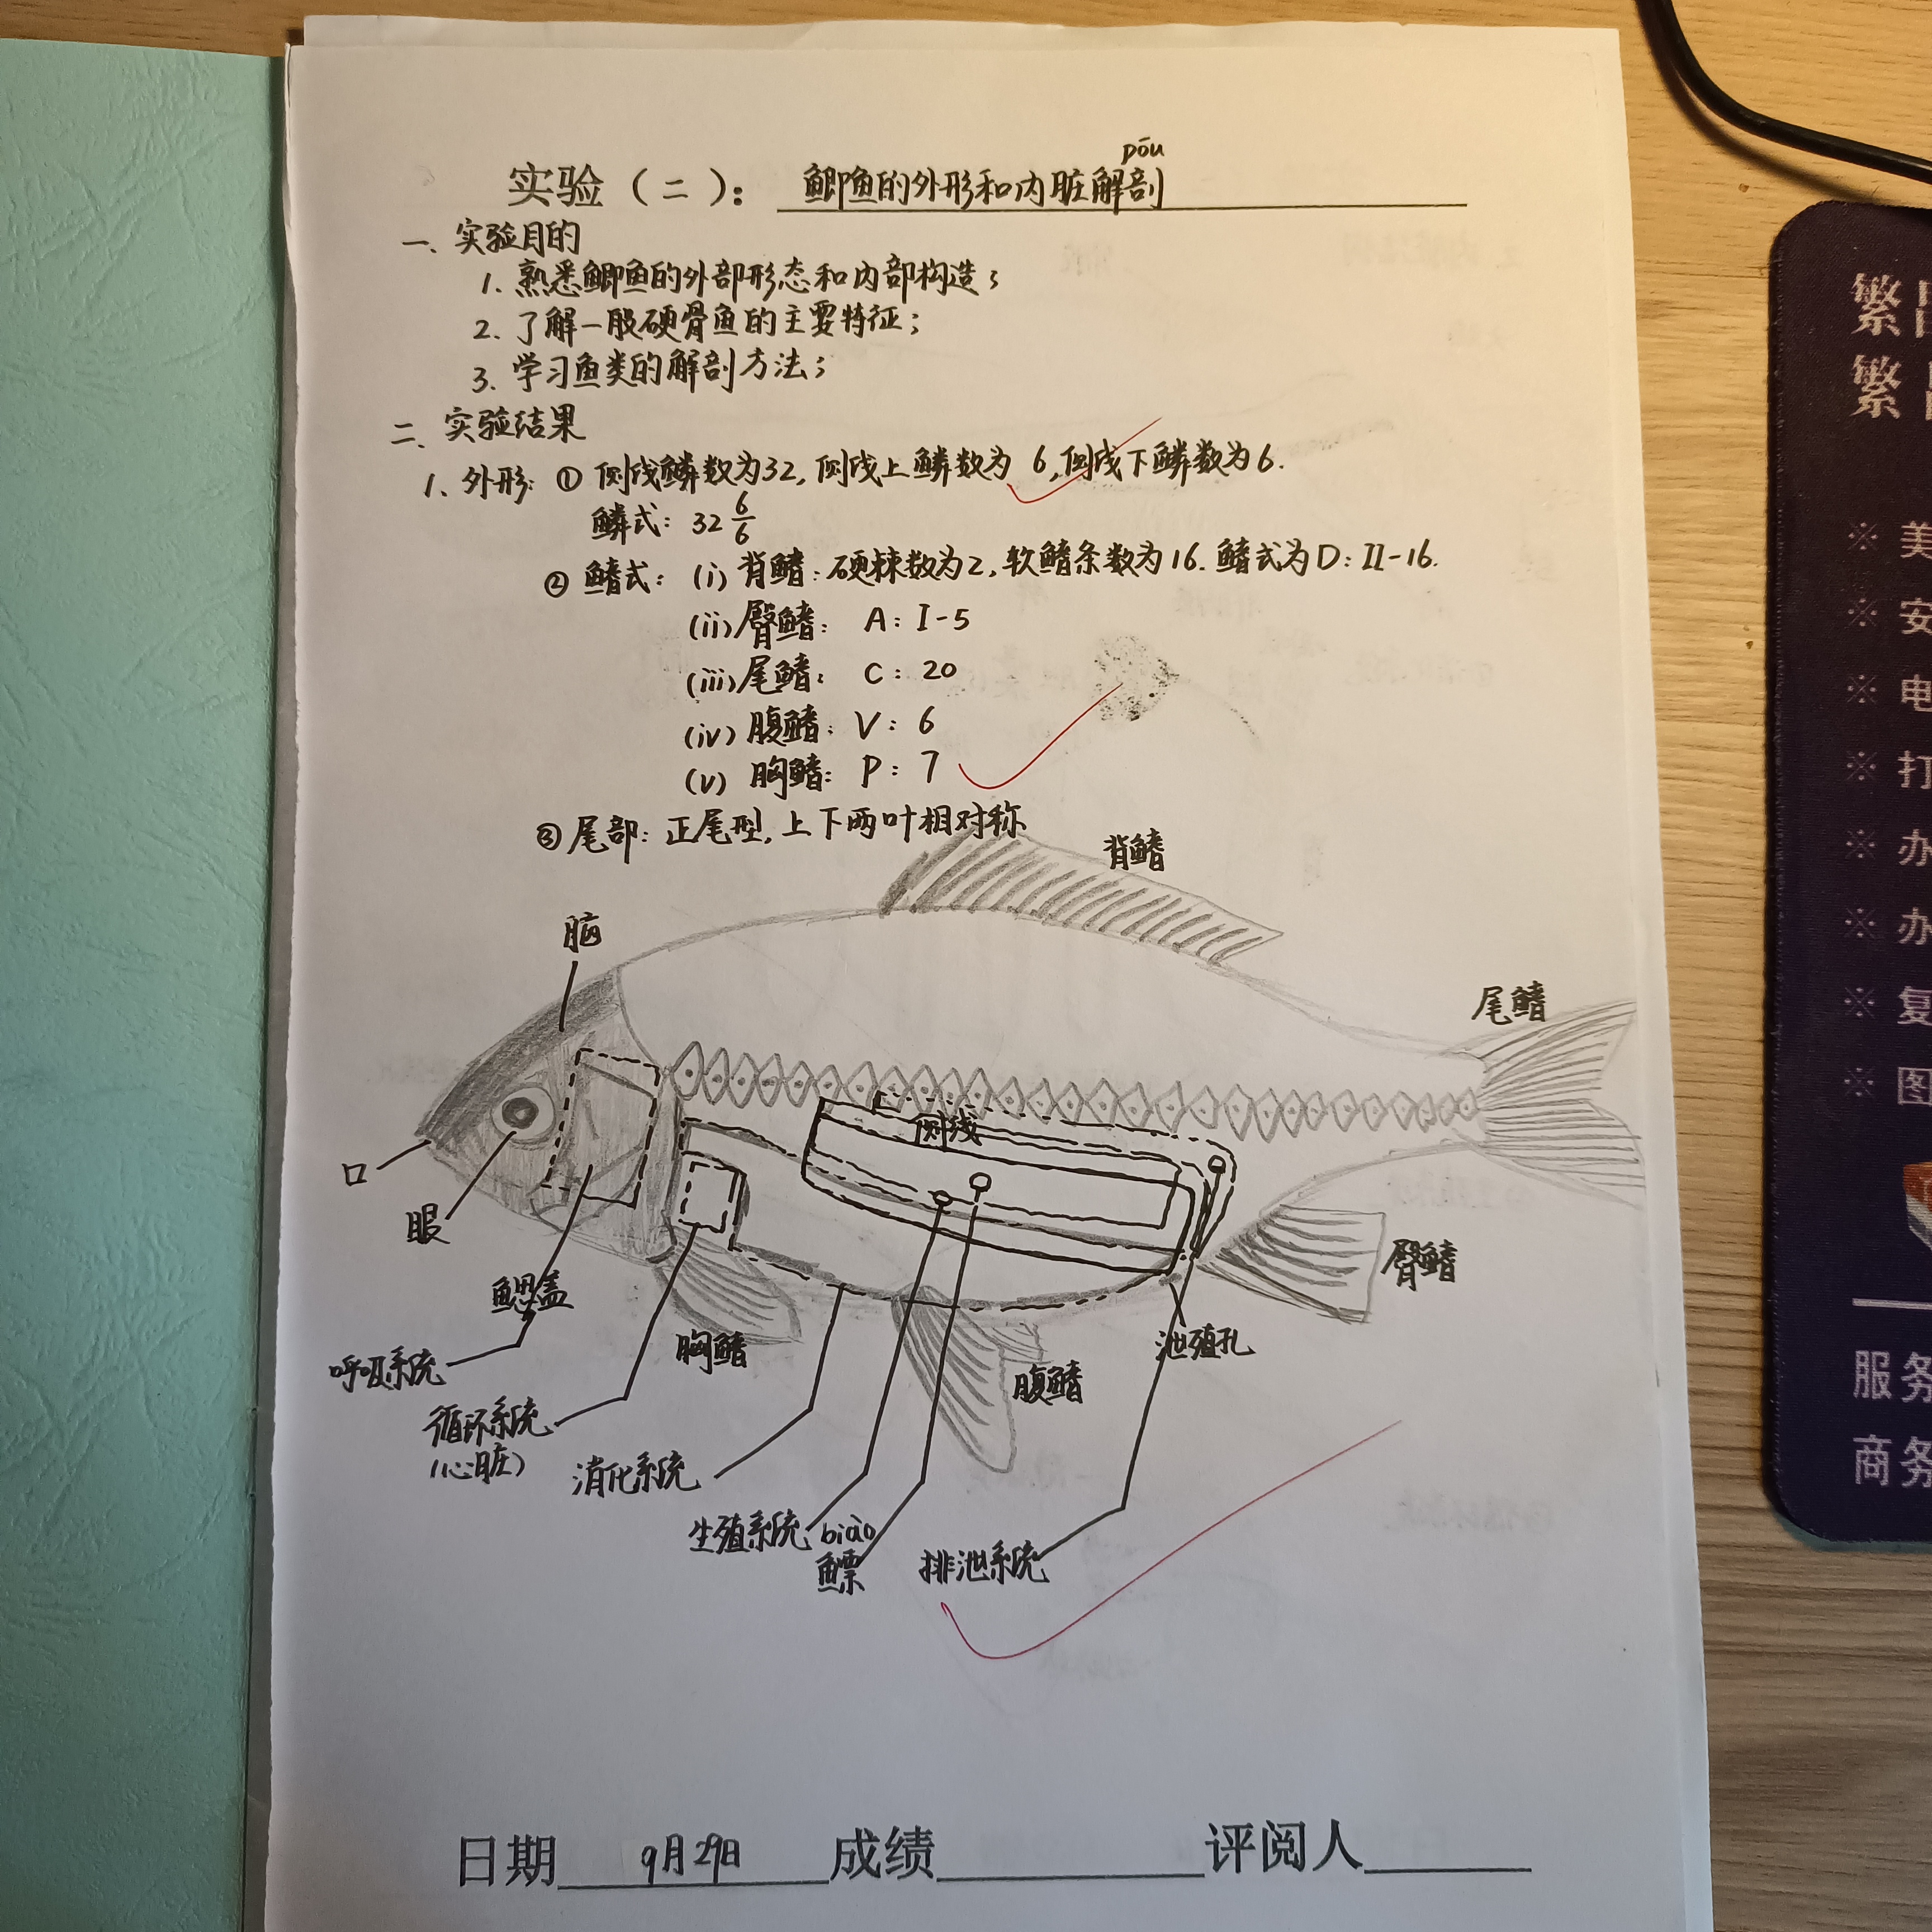 pōu
实验（二）：鲫鱼的外形和内脏解剖
一、实验目的
1. 熟悉鲫鱼的外部形态和内部构造；
2. 了解一般硬骨鱼的主要特征；
3. 学习鱼类的解剖方法；
二、实验结果
1、外形：① 侧线鳞数为32，侧线上鳞数为 6，侧线下鳞数为6.
鳞式：32 6/6
② 鳍式：(i) 背鳍：硬棘数为2，软鳍条数为16. 鳍式为D：II-16.
(ii) 臀鳍： A：I-5
(iii) 尾鳍： C：20
(iv) 腹鳍：V：6
(v) 胸鳍：P：7
③ 尾部：正尾型，上下两叶相对称
背鳍
脑
尾鳍
侧线
口
眼
鳃盖
臀鳍
呼吸系统
胸鳍
泄殖孔
腹鳍
循环系统
（心脏）
消化系统
生殖系统
biào
鳔
排泄系统
日期 9月29日 成绩 评阅人
繁
繁
※ 美
※ 安
※ 电
※ 打
※ 办
※ 办
※ 复
※ 图
服务
商务